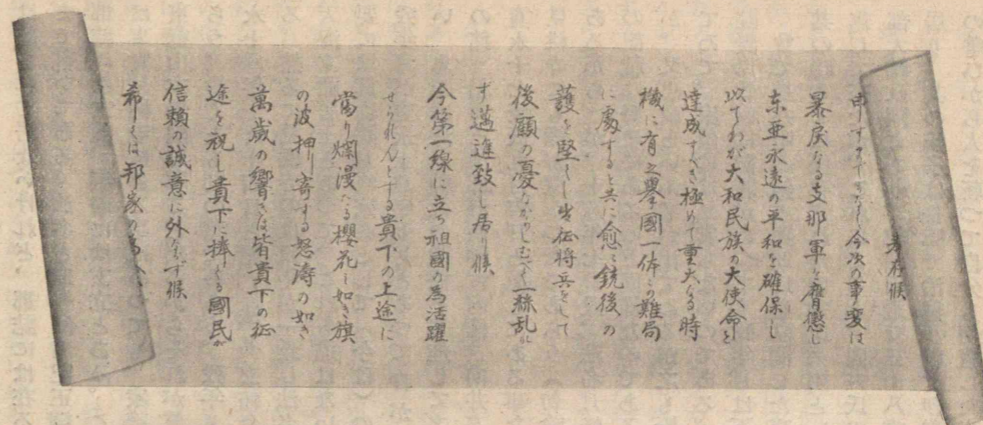 奉存候
申すまでもなく今次の事変は
暴戻なる支那軍を膺懲し
东亜永遠の平和を確保し
以てわが大和民族の大使命を
達成すべき極めて重大なる時
機に有之挙國一体この難局
に處すると共に愈々銃後の
護を堅くし出征将兵をして
後顧の憂なからしむべく一絲乱れ
ず邁進致し居り候
今第一線に立ち祖國の為活躍
せられんとする貴下の上途に
當り爛漫たる櫻花の如き旗
の波押し寄する怒涛の如き
萬歳の響きは皆貴下の征
途を祝し貴下に捧ぐる國民が
信頼の誠意に外ならず候
希くは邦家の為